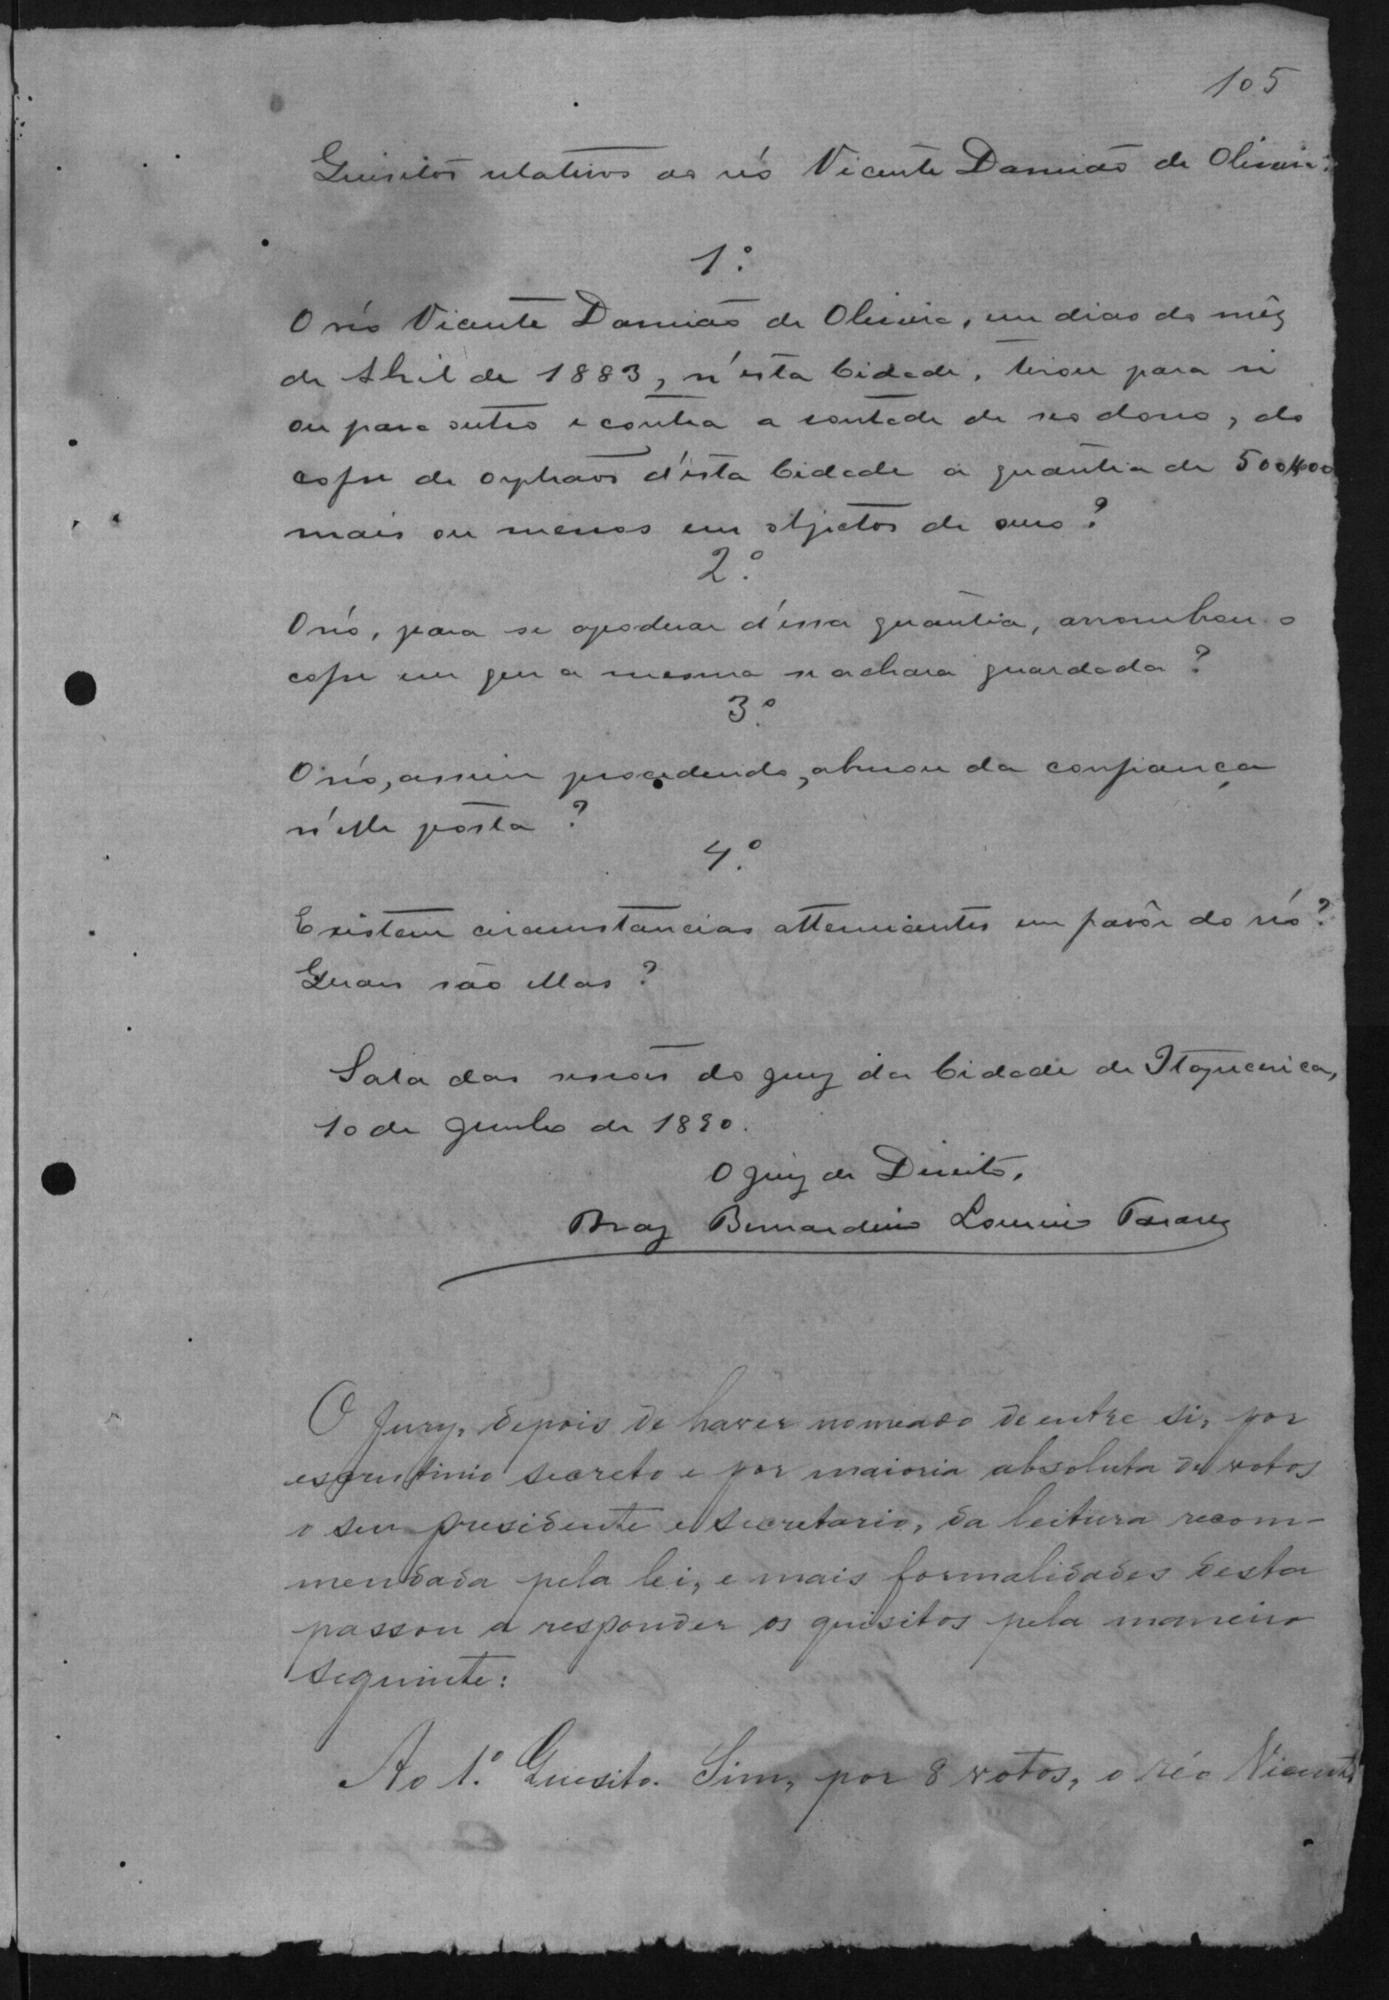 105
Quisitos relativos ao réo Vicente Damião de Oliveira
1º.
O réo Vicente Damião de Oliveira, em dias do mêz
de Abril de 1883, n'esta Cidade, tirou para si
ou para outro e contra a vontade de seo dono, do
cofre de orphãos d'ésta Cidade a quantia de 500$000
mais ou menos em objectos de ouro?
2º.
O réo, para se apoderar d'essa quantia, arrombou o
cofre em que a mesma se achava guardada?
3º.
O réo, assim procedendo, abusou da confiança
n'elle posta?
4º.
Existem circumstancias attenuantes em favôr do réo?
Quaes são ellas?
Sala das sessões do jury da Cidade de Itapecerica,
10 de Junho de 1890.
O Juiz de Direito,
Braz Bernardino Loureiro Tavares
O Jury, depois de haver nomeado de entre si, por
escrutinio secreto e por maioria absoluta de votos
o seu presidente e secretario, da leitura recom-
mendada pela lei, e mais formalidades desta
passou a responder os quisitos pela maneira
seguinte:
Ao 1.º Quesito. Sim, por 8 votos, o réo Vicente